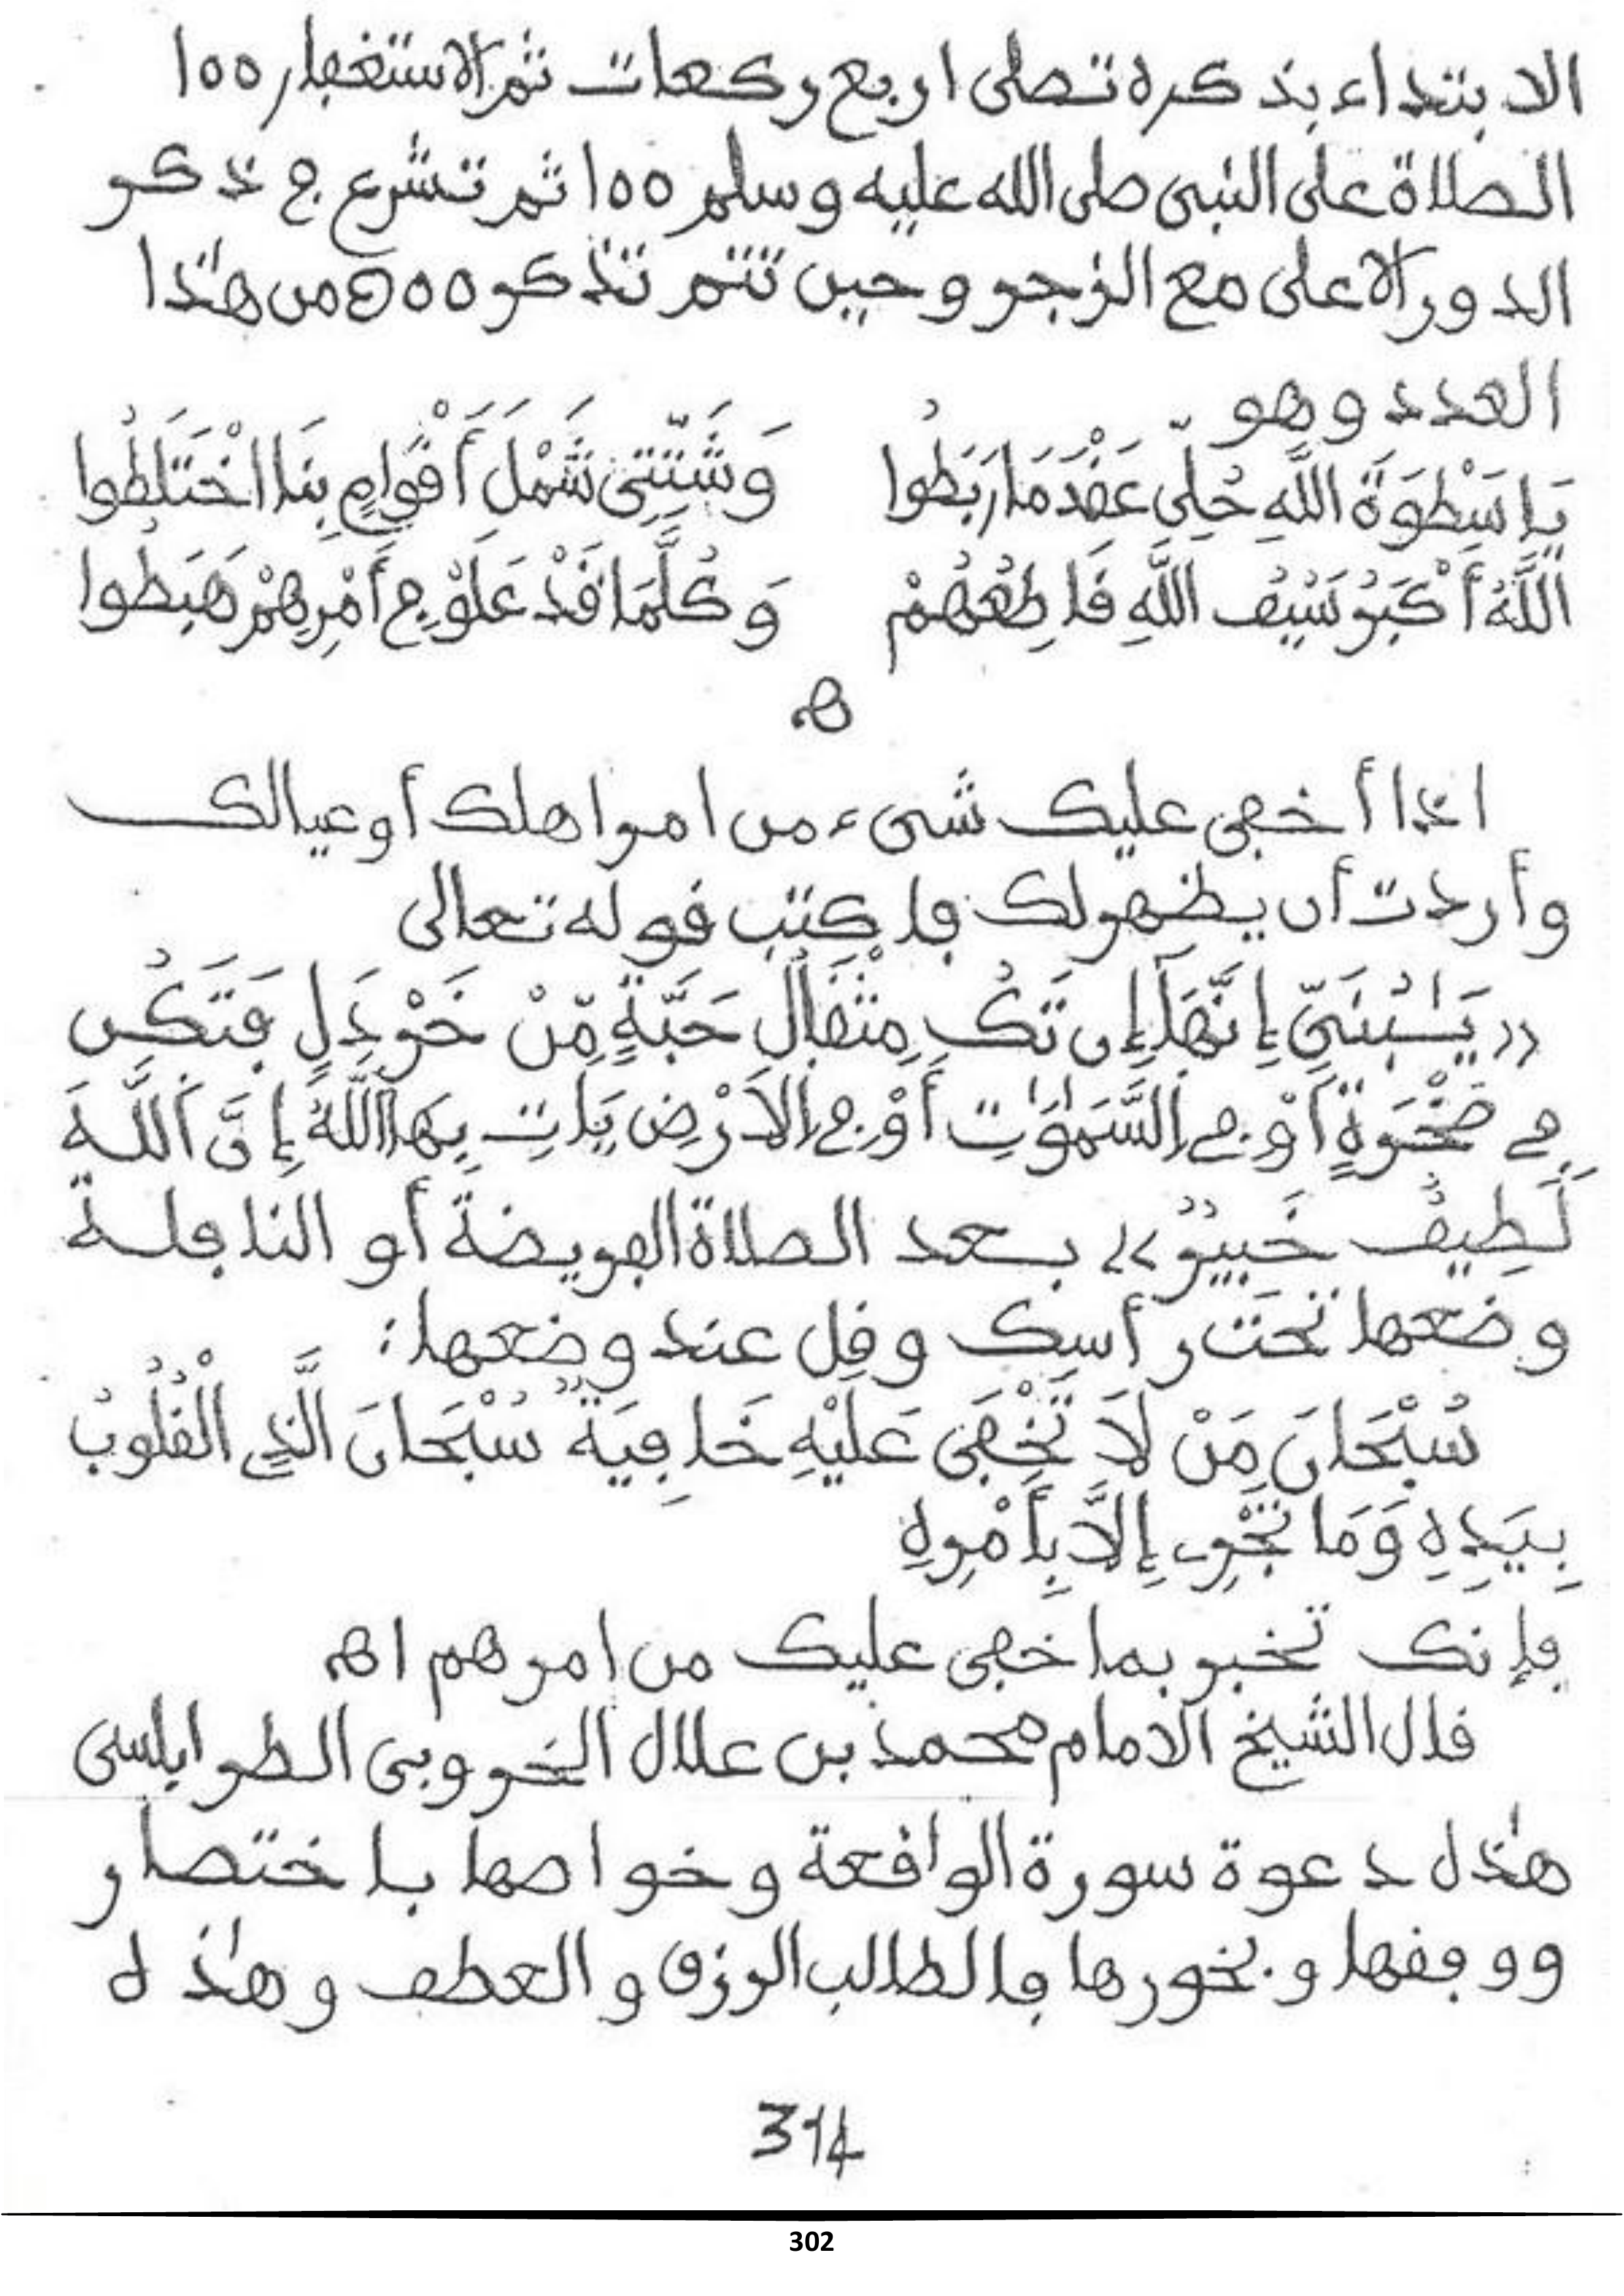 الابتداء بذكره تصلى اربع ركعات ثم الاستغفار ١٥٥
الصلاة على النبى صلى الله عليه وسلم ١٥٥ ثم تشرع في ذكر
الدور الاعلى مع الزجر وحين تتم تذكر ٥٥٥ من هٰذا
العدد وهو
يَا سَطْوَةَ اللَّهِ حُلِّي عَقْدَ مَا رَبَطُوا وَشَتِّتِي شَمْلَ أَقْوَامٍ بِنَا اخْتَلَطُوا
اللَّهُ أَكْبَرُ سَيْفُ اللَّهِ قَاطِعُهُمْ وَكُلَّمَا قَدْ عَلَوْ فِي أَمْرِهِمْ هَبَطُوا
اهـ
اذا أخفى عليك شىء من امر اهلك أو عيالك
وأردت أن يظهر لك فاكتب قوله تعالى
«يَٰبُنَيِّ إِنَّهَا إِن تَكُ مِثْقَالُ حَبَّةٍ مِّنْ خَرْدَلٍ فَتَكُن
فِي صَخْرَةٍ أَوْ فِي السَّمَٰوَٰتِ أَوْ فِي الَارْضِ يَاتِ بِهَا اَللَّهُ إِنَّ اَللَّهَ
لَطِيفٌ خَبِيرٌ» بعد الصلاة الفريضة أو النافلة
وضعها تحت رأسك وقل عند وضعها:
سُبْحَانَ مَنْ لَا تَخْفَى عَلَيْهِ خَافِيَةٌ سُبْحَانَ الَّذِي الْقُلُوبُ
بِيَدِهِ وَمَا تَجْرِي إِلَّا بِأَمْرِهِ
فإنك تخبر بما خفى عليك من امرهم اهـ
قال الشيخ الامام محمد بن علال الخروبى الطرابلسى
هٰذه دعوة سورة الواقعة وخواصها باختصار
ووفقها وبخورها فالطالب الرزق والعطف وهٰذه
314
302